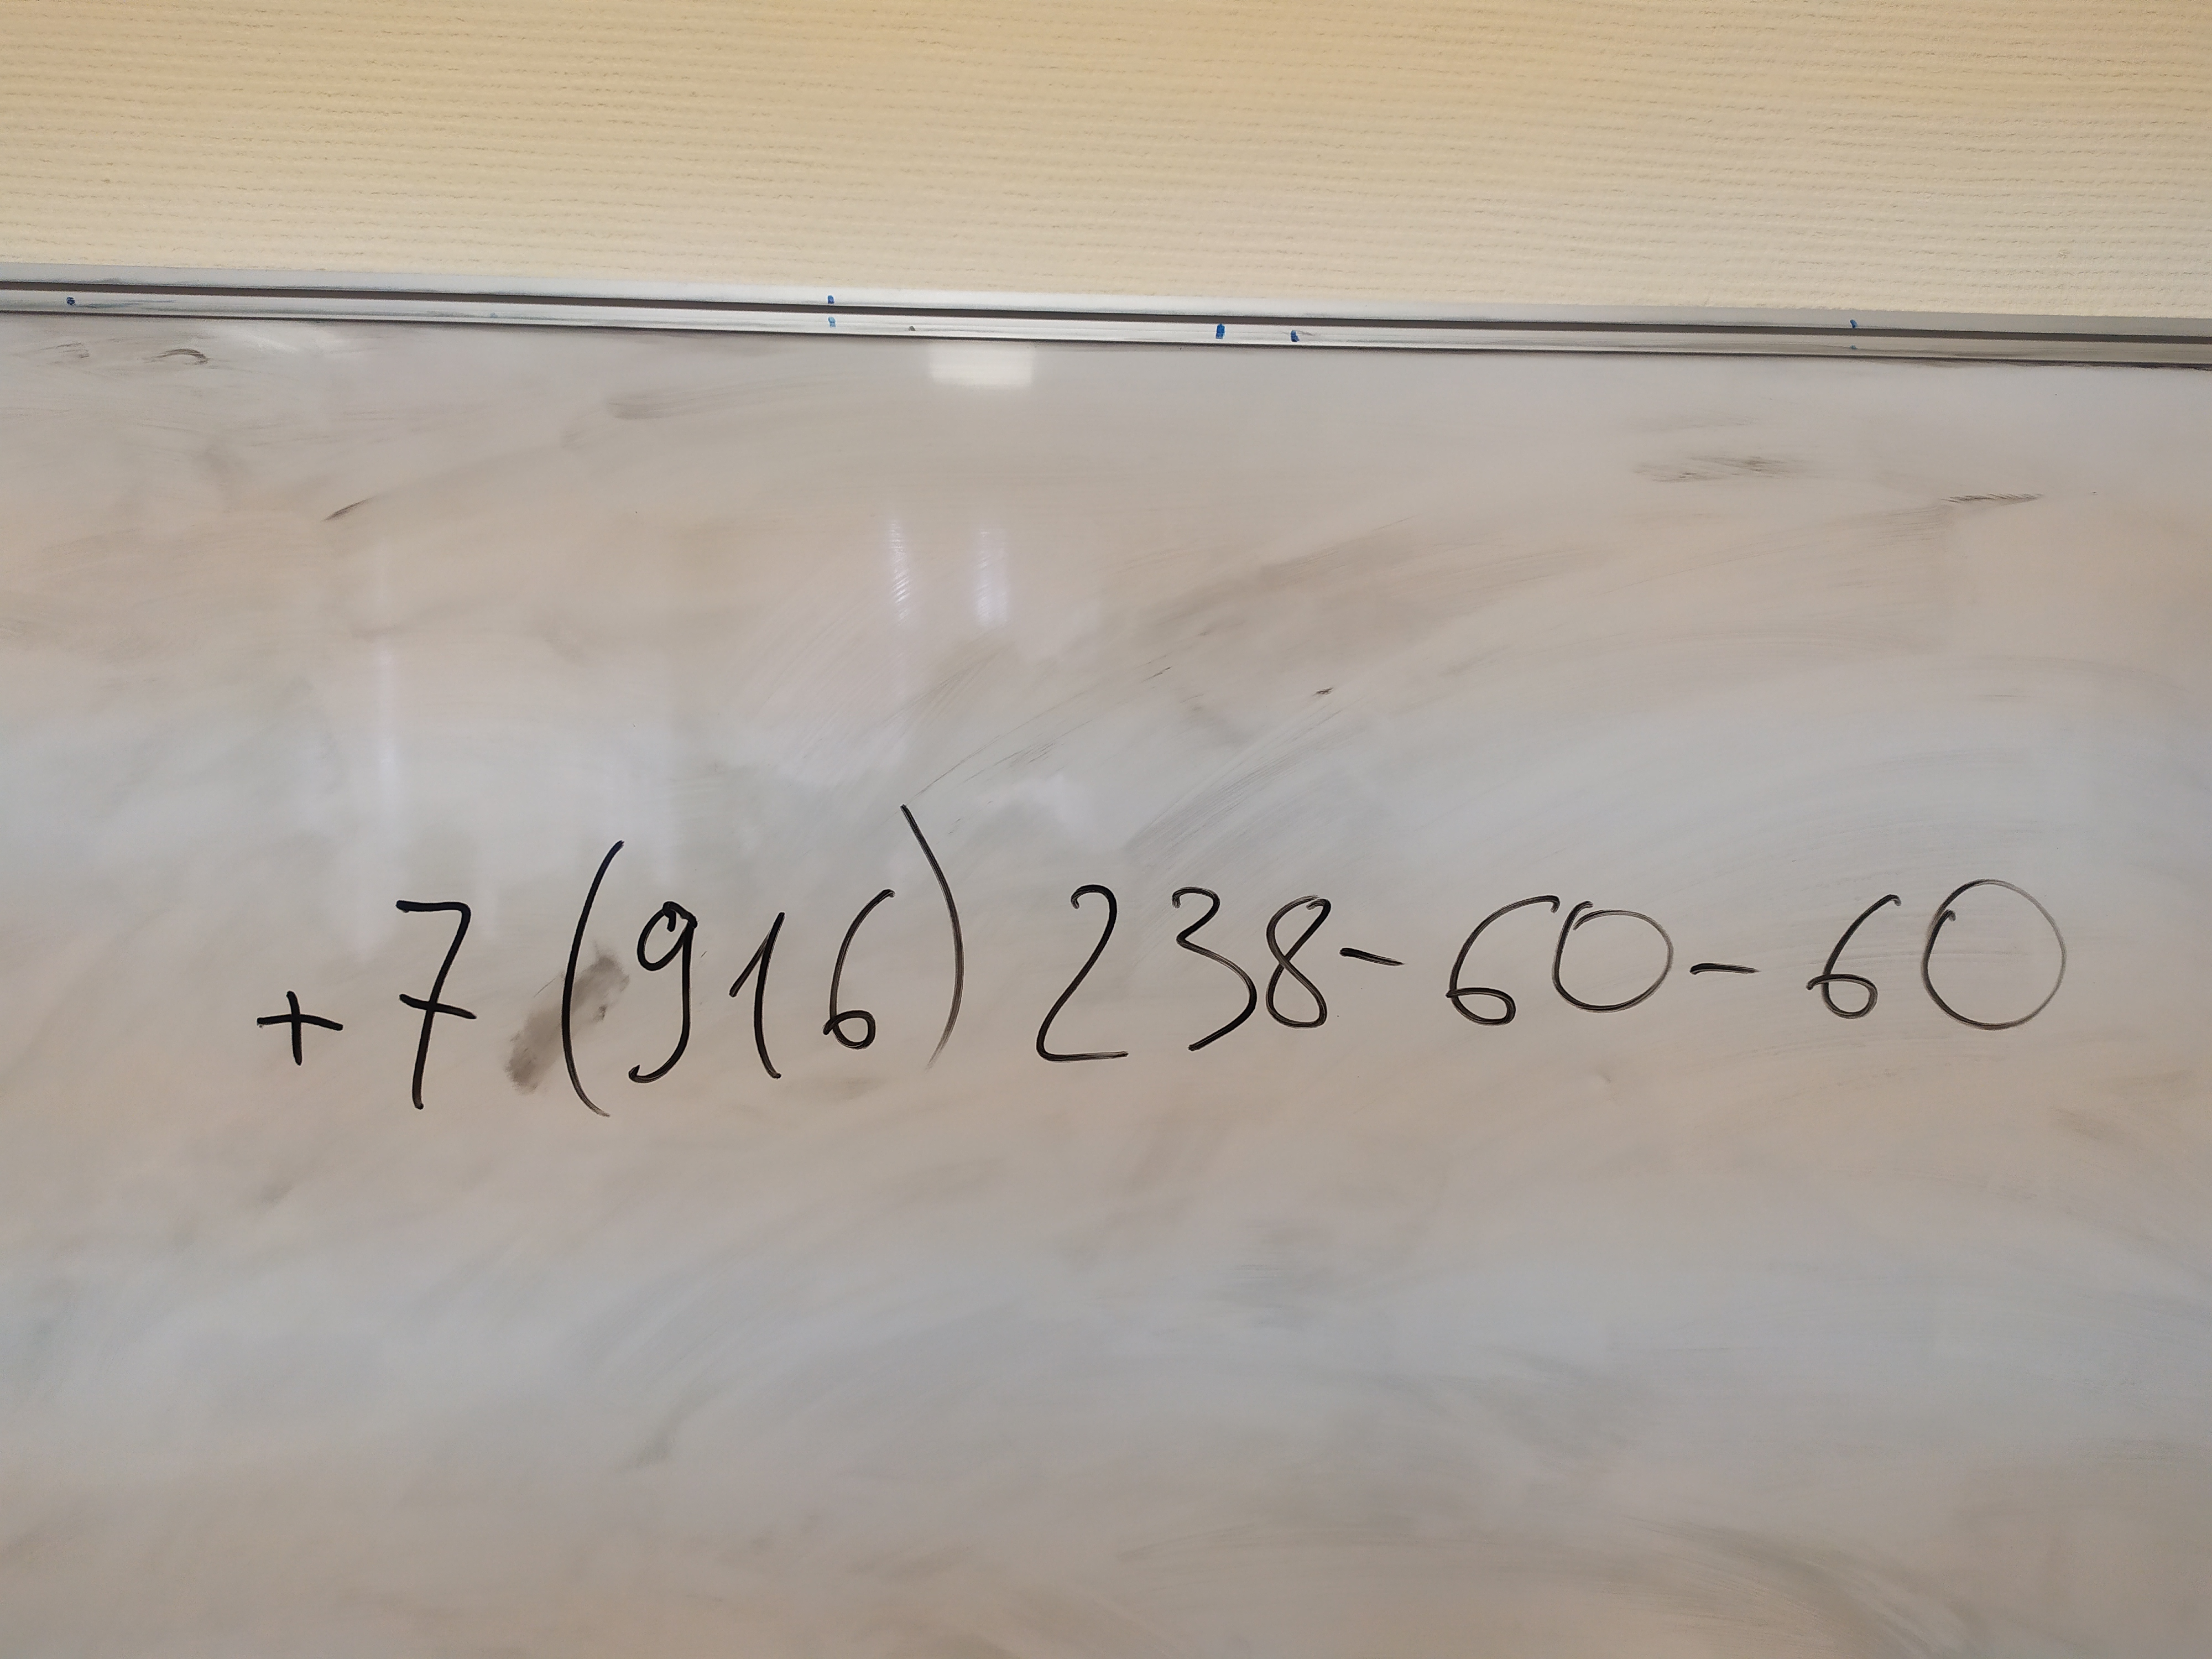 +7 (916) 238-60-60